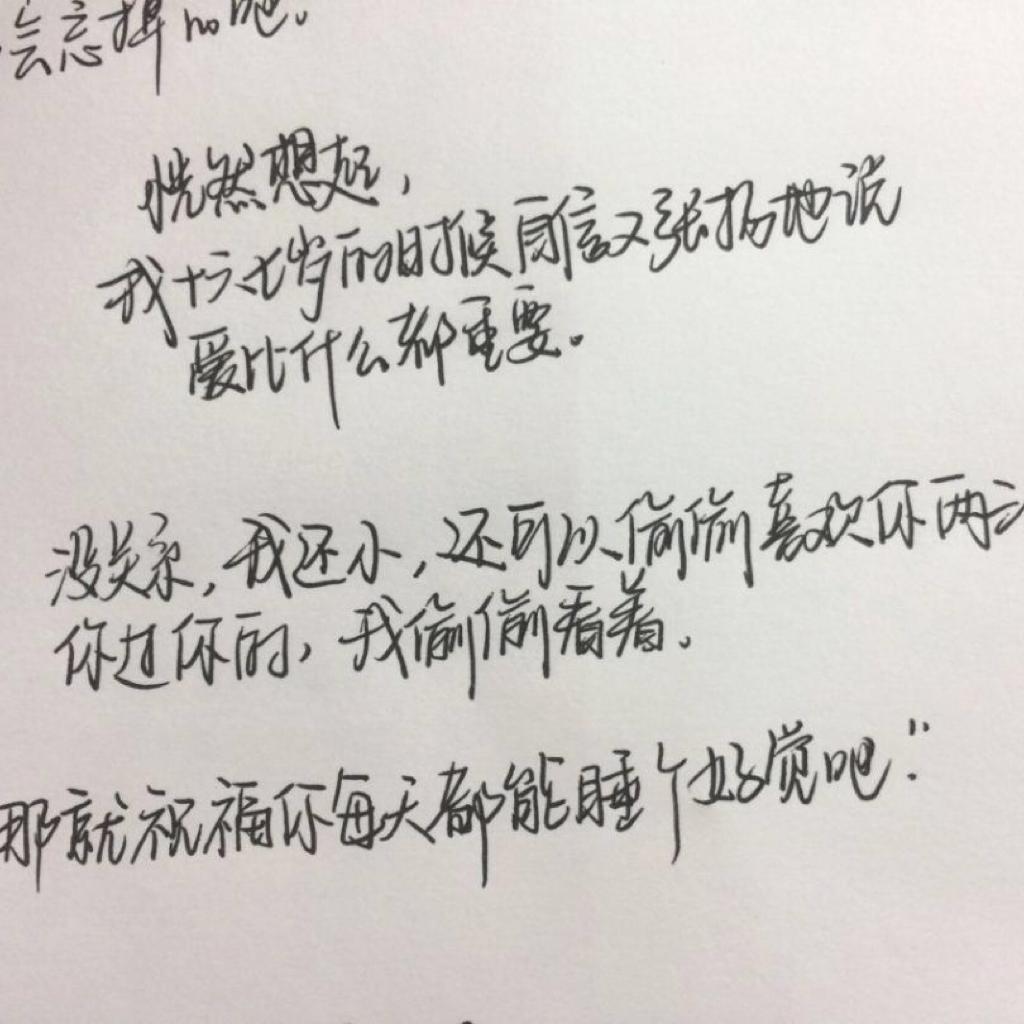 会忘掉的吧。
恍然想起,
我十六七岁的时候自信又张扬地说
爱比什么都重要。
没关系,我还小,还可以偷偷喜欢你两
你过你的,我偷偷看着。
那就祝福你每天都能睡个好觉吧."